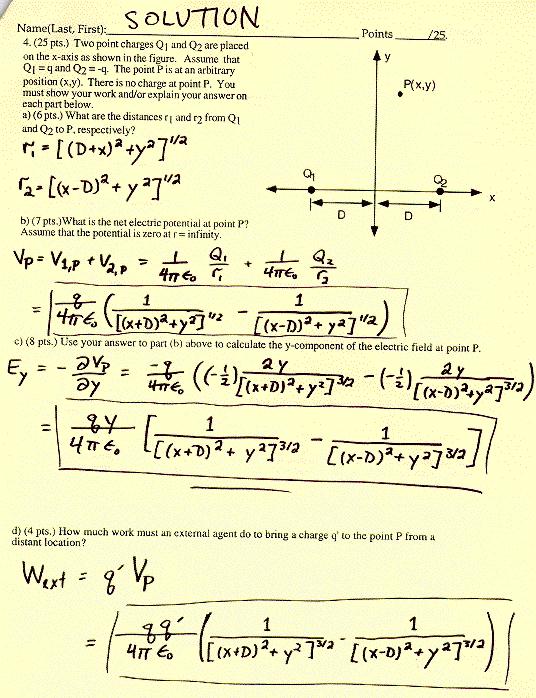 SOLUTION
Name(Last, First): Points /25
4. (25 pts.) Two point charges Q1 and Q2 are placed
on the x-axis as shown in the figure. Assume that
Q1 = q and Q2 = -q. The point P is at an arbitrary
position (x,y). There is no charge at point P. You
must show your work and/or explain your answer on
each part below.
a) (6 pts.) What are the distances r1 and r2 from Q1
and Q2 to P, respectively?
r1 = [(D+x)²+y²]^1/2
r2 = [(x-D)²+y²]^1/2
y
P(x,y)
Q1
Q2
x
D D
b) (7 pts.)What is the net electric potential at point P?
Assume that the potential is zero at r = infinity.
Vp = V1,P + V2,P = 1/4πε₀ Q1/r1 + 1/4πε₀ Q2/r2
= q/4πε₀ (1/[(x+D)²+y²]^1/2 - 1/[(x-D)²+y²]^1/2)
c) (8 pts.) Use your answer to part (b) above to calculate the y-component of the electric field at point P.
Ey = -∂Vp/∂y = -q/4πε₀ ((-1/2) 2y/[(x+D)²+y²]^3/2 - (-1/2) 2y/[(x-D)²+y²]^3/2)
= qy/4πε₀ [1/[(x+D)²+y²]^3/2 - 1/[(x-D)²+y²]^3/2]
d) (4 pts.) How much work must an external agent do to bring a charge q' to the point P from a
distant location?
Wext = q' Vp
= qq'/4πε₀ (1/[(x+D)²+y²]^3/2 - 1/[(x-D)²+y²]^3/2)